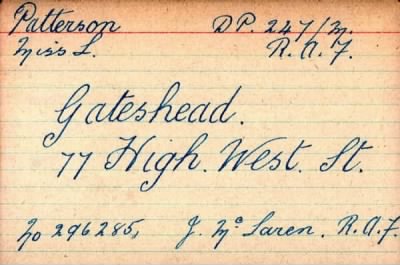 Patterson D.P. 247/M.
Miss L. R.A.F.
Gateshead.
77 High. West. St.
No 296285, J. Mc Laren. R.A.F.